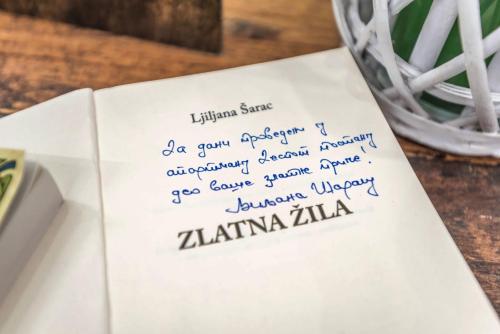 Ljiljana Šarac
Да дани проведени у
апартману Zestoi постану
део ваше златне приче!
Љиљана Шарац
ZLATNA ŽILA